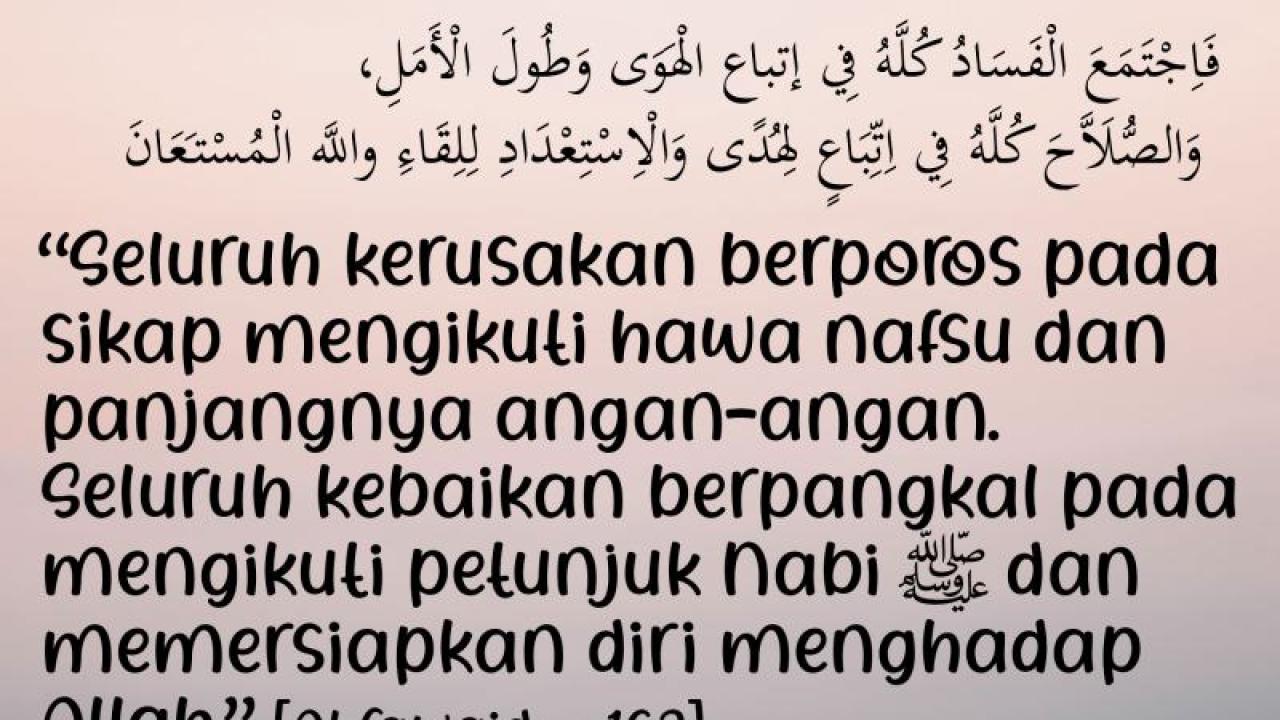 فَاِجْتَمَعَ الْفَسَادُ كُلَّهُ فِي إتباع الْهَوَى وَطُولَ الْأَمَلِ،
وَالصُّلَاَّحَ كُلَّهُ فِي اِتِّبَاعٍ لِهُدًى وَالْاِسْتِعْدَادِ لِلِقَاءِ والله الْمُسْتَعَانَ
“Seluruh kerusakan berporos pada
sikap mengikuti hawa nafsu dan
panjangnya angan-angan.
Seluruh kebaikan berpangkal pada
mengikuti petunjuk Nabi ﷺ dan
memersiapkan diri menghadap
Allah”